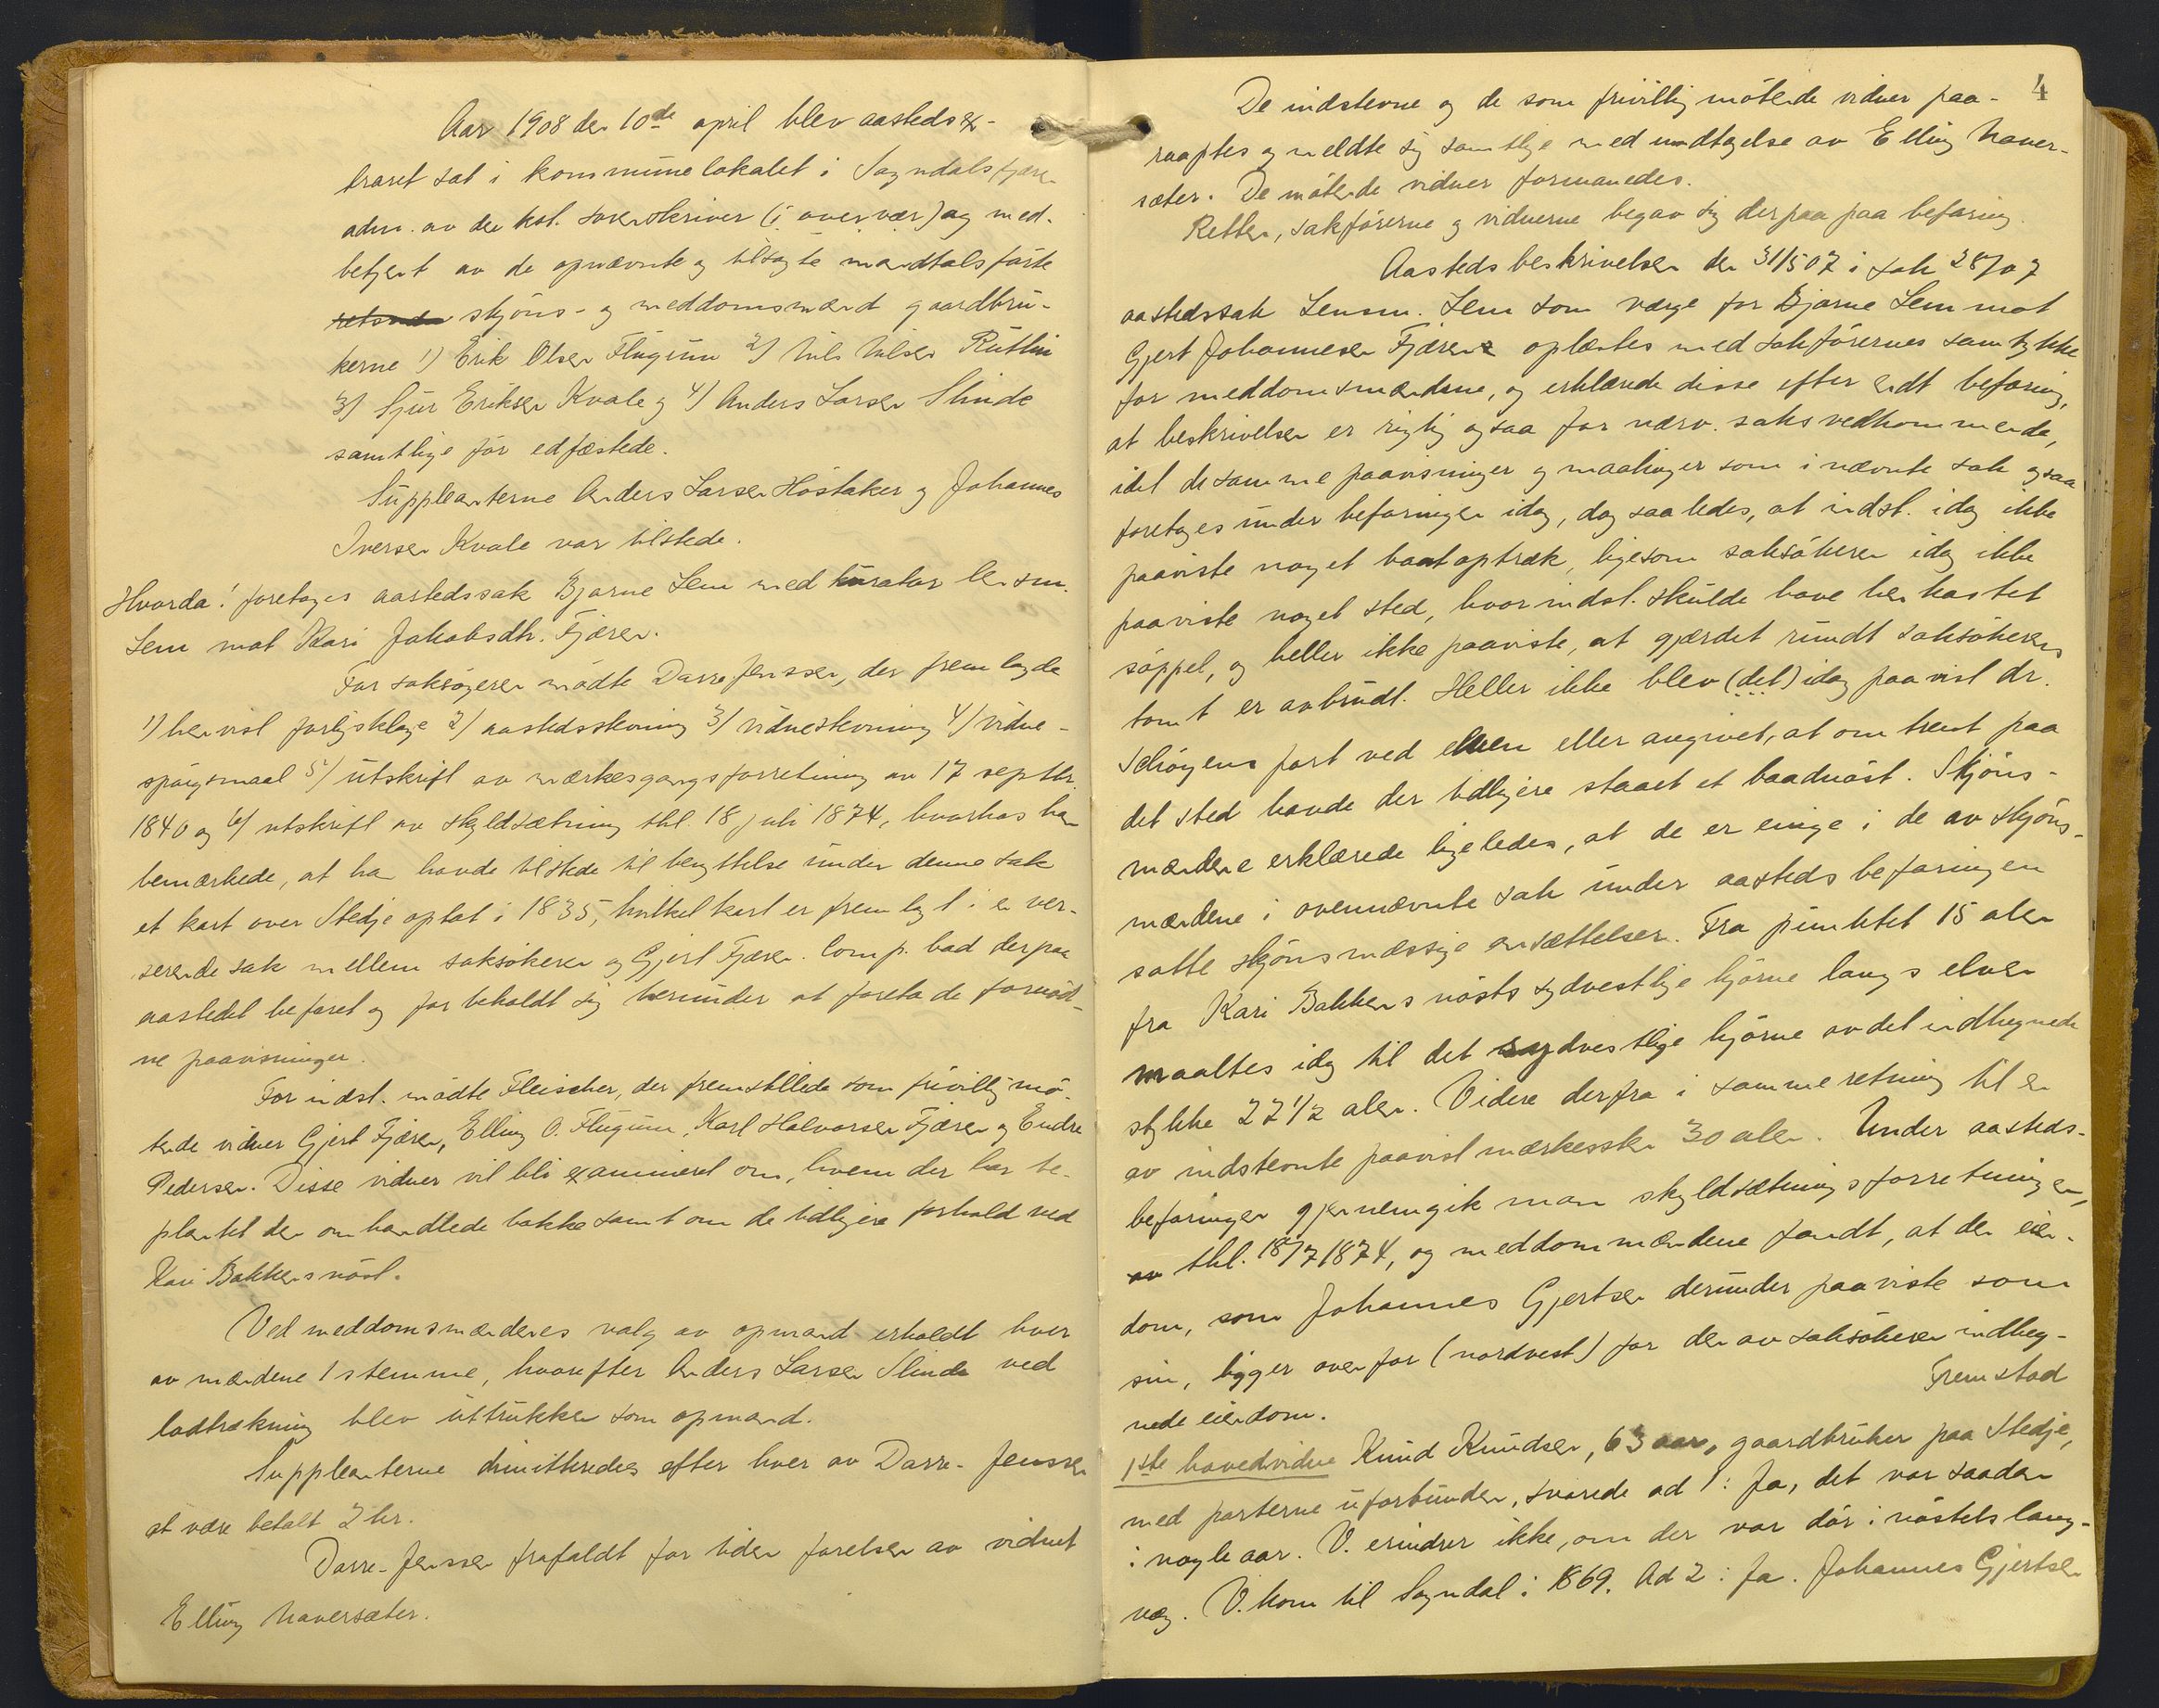 Aar 1908 den 10de april blev aastedsex-
traret sat i kommunelokalet i Sogndalsfjæren
adm. av den kst. sorenskriver (i overvær) og med-
betjent av de opnævnte og tilsagte mandtalsførte
skjøns- og meddomsmænd gaardbru-
kerne 1) Erik Olsen Flugum 2) Nils Nilsen Rutlin
3) Sjur Eriksen Kvale og 4) Anders Larsen Slinde
samtlige før edfæstede.
Suppleanterne Anders Larsen Høstaker og Johannes
Iversen Kvale var tilstede.
Hvorda! foretoges aastedssak Bjarne Lem med kurator lensm.
Lem mot Kari Jakobsdtr. Fjæren.
For saksøgeren mødte Darre Jenssen, der fremlagde
1) henvist forligsklage 2) aastedsstevning 3) vidnestevning 4) vidne-
spørgsmaal 5) utskrift av merkesgangsforretning av 17 septbr.
1840 og 6) utskrift av skyldsætning thl. 18 juli 1874, hvorhos han
bemærkede, at han havde tilstede til benyttelse under denne sak
et kart over Stedje optat i 1835, hvilket kart er fremlagt i en ver-
serende sak mellem saksøkeren og Gjert Fjæren. Comp. bad derpaa
aastedet befaret og forbeholdt sig herunder at foreta de fornødt-
ne paavisninger.
For indst. mødte Fleischer, der fremstillede som frivillig mø-
tende vidner Gjert Fjæren, Elling O. Flugum, Karl Halvorsen Fjæren og Endre
Pedersen. Disse vidner vil bli examineret om, hvem der har be-
plantet den omhandlede bakke samt om de tidligere forhold ved
Kari Bakkens nøst.
Ved meddomsmændenes valg av opmand erholdt hver
av mændene 1 stemme, hvorefter Anders Larsen Slinde ved
lodtrækning blev uttrukken som opmand.
Suppleanterne dimitteredes efter hver av Darre-Jenssen
at være betalt 2 kr.
Darre-Jenssen frafaldt for tiden førelsen av vidnet
Elling Navarsæter.
4
De indstevne og de som frivillig møtende vidner paa-
raaptes og meldte sig samtlige med undtagelse av Elling Naver-
sæter. De møtende vidner formanedes.
Retten, sakførerne og vidnerne begav sig derpaa paa befaring.
Aastedsbeskrivelsen den 31/5 07 i sak 28/07
aastedssak Lensm. Lem som værge for Bjarne Lem mot
Gjert Johannesen Fjæren oplæstes med sakførernes samtykke
for meddomsmændene, og erklærede disse efter endt befaring,
at beskrivelsen er rigtig ogsaa for nærv. saks vedkommende,
idet de samme paavisninger og maalinger som i nævnte sak ogsaa
foretoges under befaringen idag, dog saaledes, at indst. idag ikke
paaviste noget baatoptræk, ligesom saksøkeren idag ikke
paaviste noget sted, hvor indst. skulde have henkastet
søppel, og heller ikke paaviste, at gjærdet rundt saksøkerens
tomt er avbrudt. Heller ikke blev (det) idag paavist dr.
Schøyens fort ved elven eller angivet, at omtrent paa
det sted havde der tidligere staaet et baadnøst. Skjøns-
mændene erklærede ligeledes, at de er enige i de av skjøns-
mændene i ovennævnte sak under aastedsbefaringen
satte skjønsmæssige ansættelser. Fra punktet 15 alen
fra Kari Bakkens nøsts sydvestlige hjørne langs elven
maaltes idag til det sydvestlige hjørne av det indhegnede
stykke 22 1/2 alen. Videre derfra i samme retning til en
av indstevnte paavist merkessten 30 alen. Under aasteds-
befaringen gjennemgik man skyldsætningsforretningen,
thl. 18/7 1874, og meddommændene fandt, at den eien-
dom, som Johannes Gjertsen derunder paaviste som
sin, ligger ovenfor (nordvest) for den av saksøkeren indheg-
nede eiendom.
Fremstod
1ste hovedvidne Knud Knudsen, 63 aar, gaardbruker paa Stedje,
med parterne uforbunden, svarede ad 1: Ja, det var saadan
i nogle aar. V. erindrer ikke, om der var dør i nøstets lang-
væg. V. kom til Sogndal i 1869. Ad 2: Ja. Johannes Gjertsen